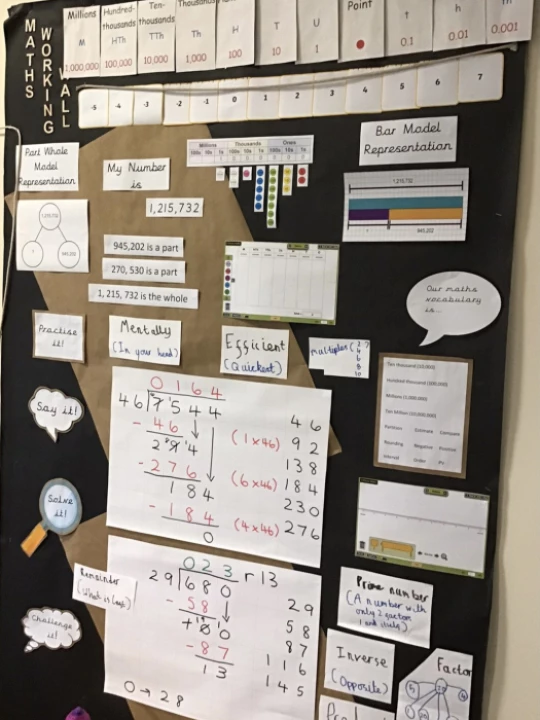 MATHS
WORKING
WALL
Millions
M
1,000,000
Hundred-
thousands
HTh
100,000
Ten-
thousands
TTh
10,000
Thousands
Th
1,000
H
100
T
10
U
1
Point
t
0.1
h
0.01
Th
0.001
-5 -4 -3 -2 -1 0 1 2 3 4 5 6 7
Part Whole
Model
Representation
My Number
is
1,215,732
Millions Thousands Ones
100s 10s 1s 100s 10s 1s 100s 10s 1s
Bar Model
Representation
1,215,732
945,202
1,215,732
945,202
945,202 is a part
270, 530 is a part
1, 215, 732 is the whole
Our maths
vocabulary
is...
Practise
it!
Mentally
(In your head)
Efficient
(Quickest)
multiples (2 7
4
6
8
10
Ten thousand (10,000)
Hundred thousand (100,000)
Millions (1,000,000)
Ten Million (10,000,000)
Partition Estimate Compare
Rounding Negative Positive
Interval Order
Say it!
0164
46 7544
- 46
294
- 276
184
- 184
0
(1x46)
(6x46)
(4x46)
46
92
138
184
230
276
Solve
it!
Remainder
(What is left)
023 r 13
29 680
- 58
100
- 87
13
0 → 28
29
58
87
116
145
Challenge
it!
Prime number
(A number with
only 2 factors
1 and itself)
Inverse
(Opposite)
Factor